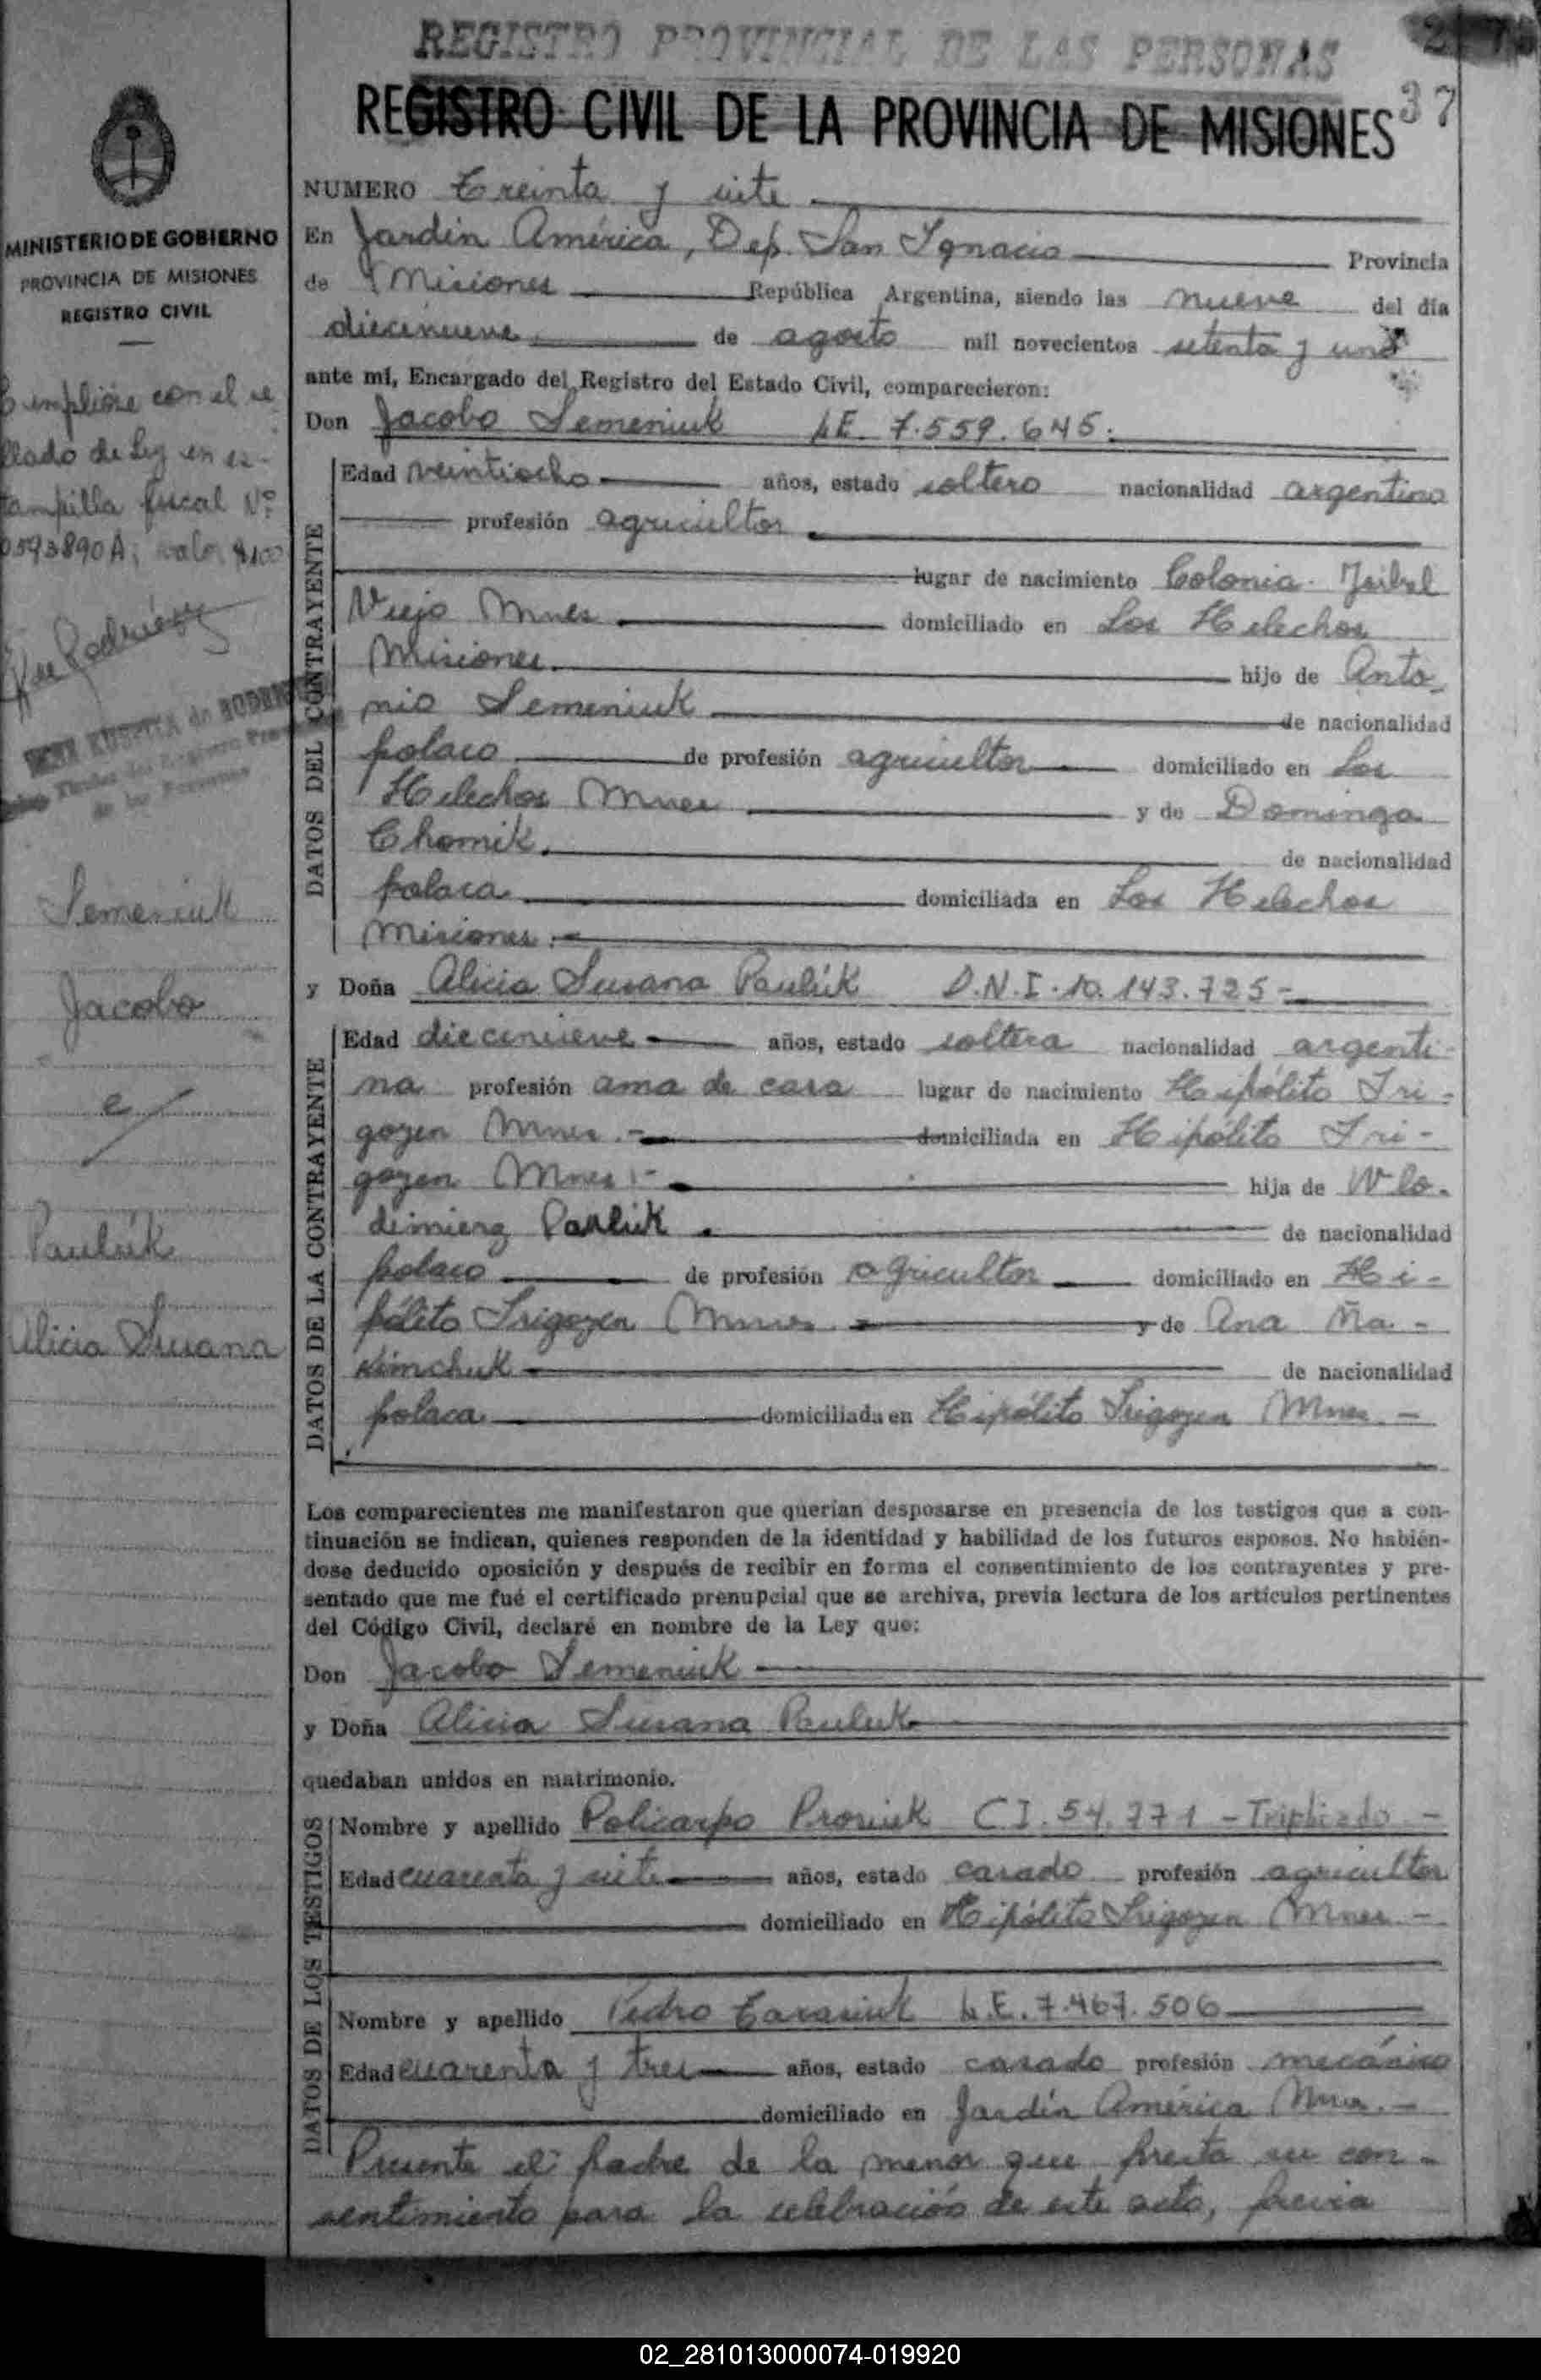 REGISTRO PROVINCIAL DE LAS PERSONAS
REGISTRO CIVIL DE LA PROVINCIA DE MISIONES
37
NUMERO Treinta y siete
En Jardín América, Dep. San Ignacio Provincia
de Misiones República Argentina, siendo las nueve del día
diecinueve de agosto mil novecientos setenta y uno
ante mí, Encargado del Registro del Estado Civil, comparecieron:
Don Jacobo Semeniuk LE. 7.559.645.
DATOS DEL CONTRAYENTE
Edad veintiocho años, estado soltero nacionalidad argentino
profesión agricultor
lugar de nacimiento Colonia Yerbal
Viejo Mnes domiciliado en Los Helechos
Misiones. hijo de Anto-
nio Semeniuk de nacionalidad
polaco de profesión agricultor domiciliado en Los
Helechos Mnes y de Dominga
Chomik. de nacionalidad
polaca domiciliada en Los Helechos
Misiones.-
y Doña Alicia Susana Paulúk D.N.I. 10.143.725-
DATOS DE LA CONTRAYENTE
Edad diecinueve años, estado soltera nacionalidad argenti-
na profesión ama de casa lugar de nacimiento Hipólito Iri-
goyen Mnes.- domiciliada en Hipólito Iri-
goyen Mnes.- hija de Wlo-
dimierz Pauluk. de nacionalidad
polaco de profesión agricultor domiciliado en Hi-
pólito Irigoyen Mnes y de Ana Ña-
kimchuk de nacionalidad
polaca domiciliada en Hipólito Irigoyen Mnes.-
Los comparecientes me manifestaron que querían desposarse en presencia de los testigos que a con-
tinuación se indican, quienes responden de la identidad y habilidad de los futuros esposos. No habién-
dose deducido oposición y después de recibir en forma el consentimiento de los contrayentes y pre-
sentado que me fué el certificado prenupcial que se archiva, previa lectura de los artículos pertinentes
del Código Civil, declaré en nombre de la Ley que:
Don Jacobo Semeniuk
y Doña Alicia Susana Pauluk
quedaban unidos en matrimonio.
DATOS DE LOS TESTIGOS
Nombre y apellido Policarpo Prosiuk C I. 54.771 - Triplicado -
Edad cuarenta y siete años, estado casado profesión agricultor
domiciliado en Hipólito Irigoyen Mnes -
Nombre y apellido Pedro Tarasiuk L.E. 7.467.506
Edad cuarenta y tres años, estado casado profesión mecánico
domiciliado en Jardín América Mnes.-
Presente el padre de la menor que presta su con-
sentimiento para la celebración de este acto, previa
MINISTERIO DE GOBIERNO
PROVINCIA DE MISIONES
REGISTRO CIVIL
Cumplióse con el se
llado de Ley en es-
tampilla fiscal Nº
0593890A; valor $100
Semeniuk
Jacobo
e/
Paulúk
Alicia Susana
02_281013000074-019920